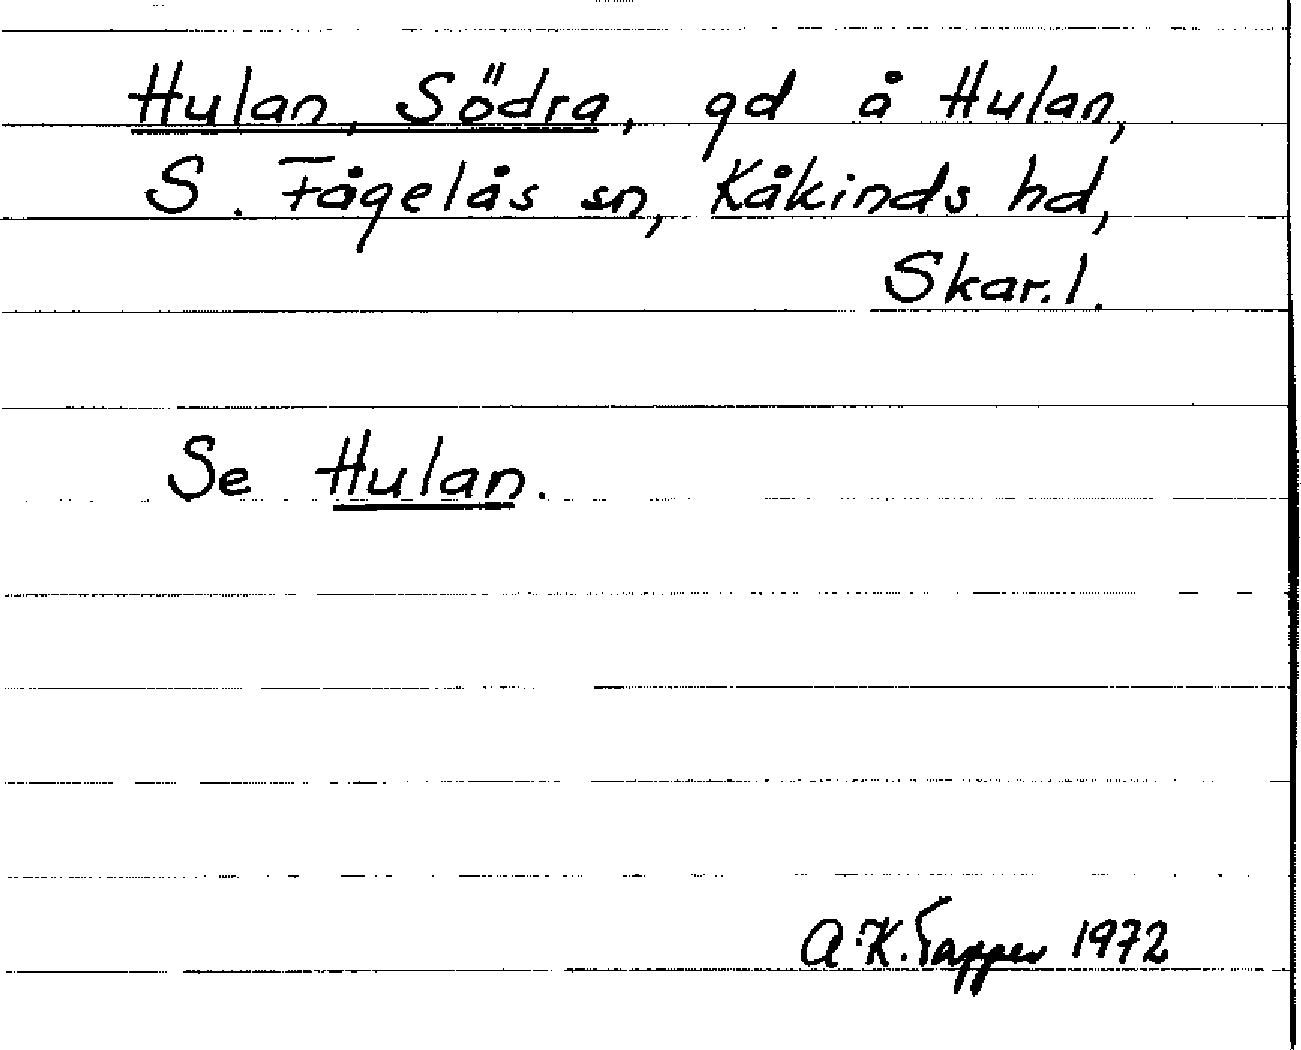 Hulan, Södra, gd å Hulan,
S. Fågelås sn, Kåkinds hd,
Skar. l.
Se Hulan.
A-K. Tapper 1972